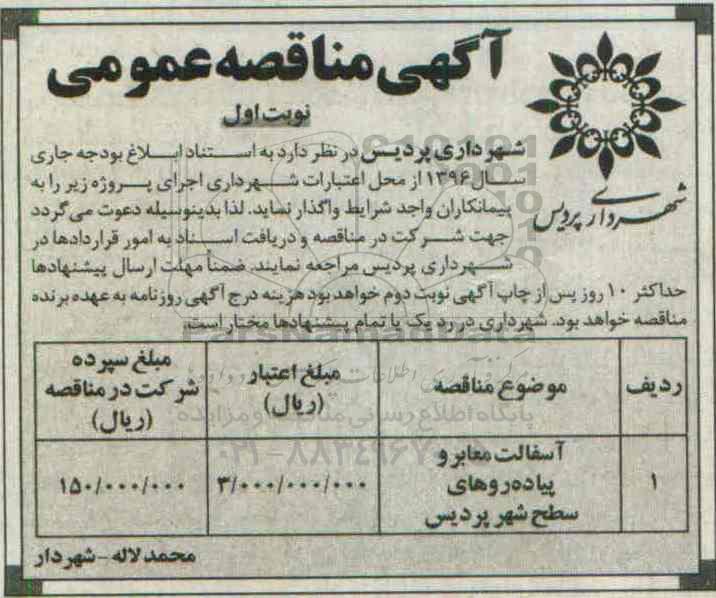 آگهی مناقصه عمومی
نوبت اول
شهرداری پردیس
شهرداری پردیس در نظر دارد به استناد ابلاغ بودجه جاری
سال ۱۳۹۶ از محل اعتبارات شهرداری اجرای پروژه زیر را به
پیمانکاران واجد شرایط واگذار نماید. لذا بدینوسیله دعوت می گردد
جهت شرکت در مناقصه و دریافت اسناد به امور قراردادها در
شهرداری پردیس مراجعه نمایند. ضمناً مهلت ارسال پیشنهادها
حداکثر ۱۰ روز پس از چاپ آگهی نوبت دوم خواهد بود هزینه درج آگهی روزنامه به عهده برنده
مناقصه خواهد بود. شهرداری در رد یک یا تمام پیشنهادها مختار است.
ردیف موضوع مناقصه مبلغ اعتبار (ریال) مبلغ سپرده شرکت در مناقصه (ریال)
۱ آسفالت معابر و پیاده روهای سطح شهر پردیس ۳/۰۰۰/۰۰۰/۰۰۰ ۱۵۰/۰۰۰/۰۰۰
محمد لاله - شهردار
ParsNamadData
پایگاه اطلاع رسانی مناقصه و مزایده